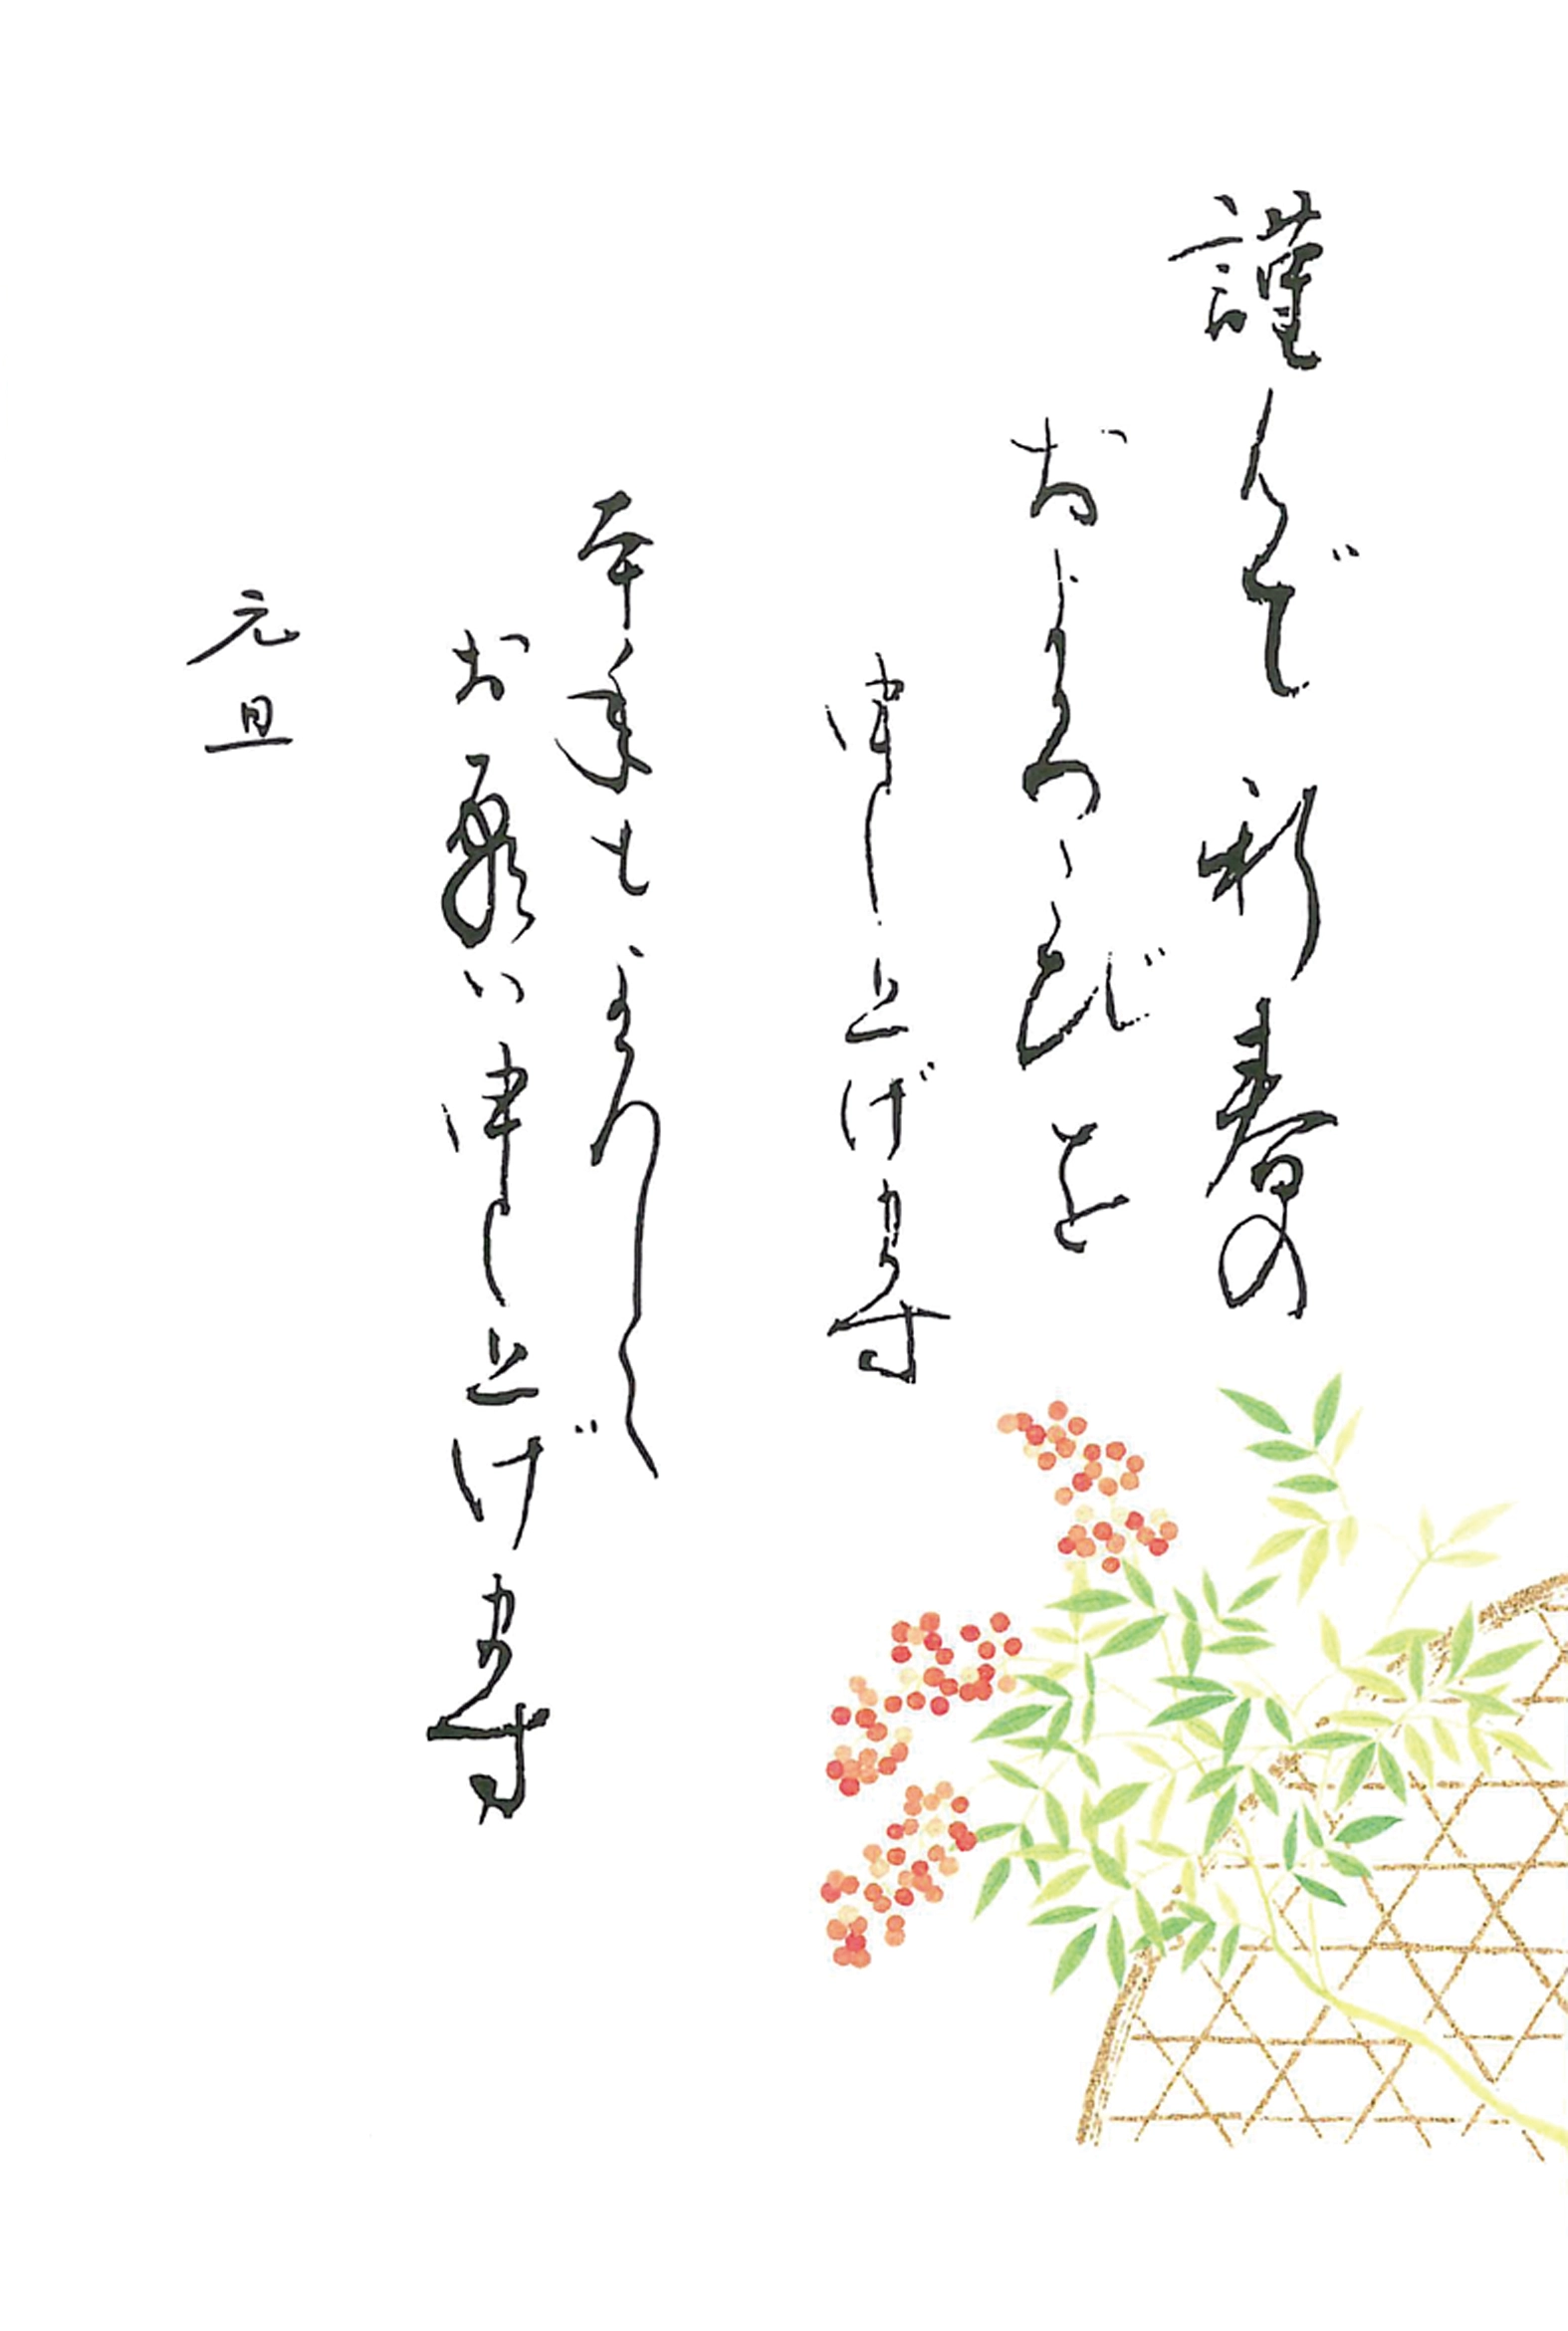 謹んで新春の
およろこびを
申し上げます
本年もよろしく
お願い申し上げます
元旦